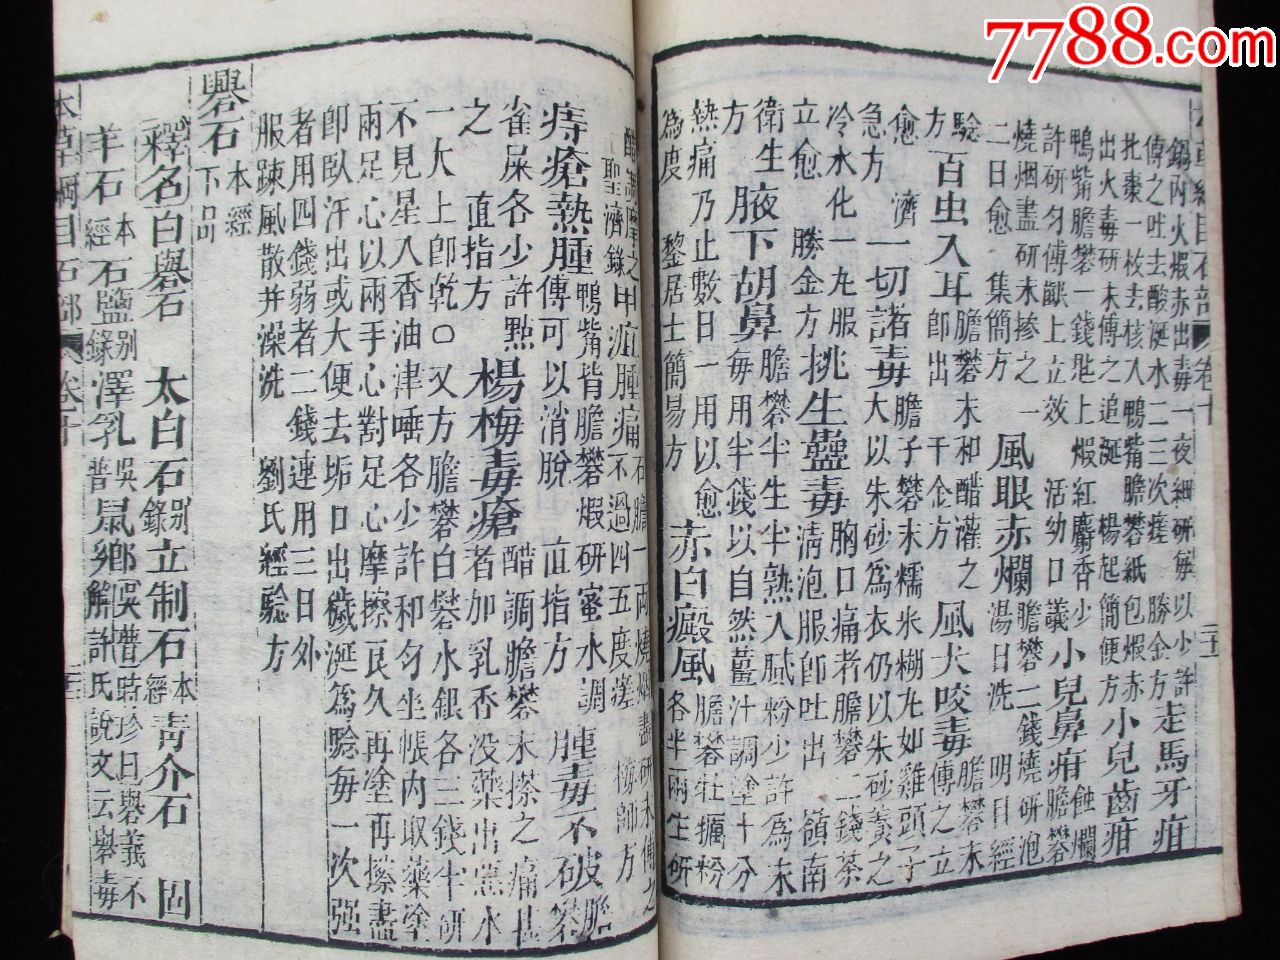 鍋內火煆赤出毒一夜細研解以少許
傅之吐去酸涎水二三次瘥 勝金方 走馬牙疳
北棗一枚去核入鴨嘴膽礬紙包煆赤
出火毒研末傅之追涎 楊起簡便方 小兒齒疳
鴨嘴膽礬一錢匙上煆紅麝香少
許研勻傅齦上立效 活幼口議 小兒鼻疳 蝕爛膽礬
燒烟盡研末摻之一
二日愈 集簡方 風眼赤爛 膽礬二錢燒研泡湯日洗 明目經
驗方 百虫入耳 膽礬末和醋灌之即出 千金方 風犬咬毒 膽礬末傅之立
愈 濟急方 一切諸毒 膽子礬末糯米糊丸如雞頭子大以朱砂為衣仍以朱砂養之
冷水化一丸服立愈 勝金方 挑生蠱毒 胸口痛者膽礬二錢茶清泡服即吐出 嶺南
衛生方 腋下胡臭 膽礬半生半熟入膩粉少許為末每用半錢以自然薑汁調塗十分
熱痛乃止數日一用以愈為度 黎居士簡易方 赤白癜風 膽礬牡蠣粉各半兩生研
醋調摩之 聖濟錄 甲疽腫痛 石膽一兩燒烟盡研末傅之不過四五度瘥 梅師方
痔瘡熱腫 鴨嘴青膽礬煆研蜜水調傅可以消脫 直指方 腫毒不破 膽礬
雀屎各少許點之 直指方 楊梅毒瘡 醋調膽礬末搽之痛甚者加乳香沒藥出惡水
一大上即乾○又方膽礬白礬水銀各三錢半研
不見星入香油津唾各少許和勻坐帳內取藥塗
兩足心以兩手心對足心摩擦良久再塗再擦盡
即臥汗出或大便去垢口出穢涎為驗每一次强
者用四錢弱者二錢連用三日外
服踈風散并澡洗 劉氏經驗方
礜石 本經下品
釋名 白礜石 太白石 别錄 立制石 本經 靑介石 固
羊石 本經 石鹽 别錄 澤乳 吳普 鼠鄉 吳普 時珍曰礜義不解許氏說文云礜毒
本草綱目石部 卷十
7788.com